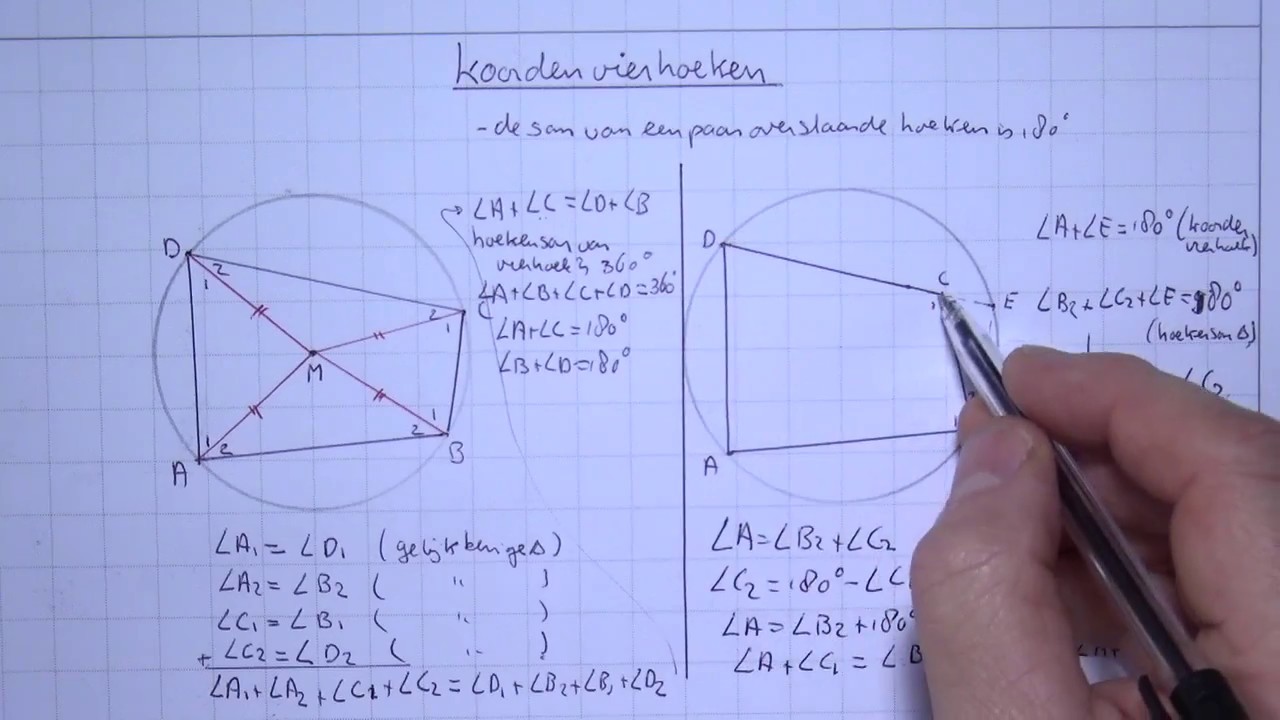 Koordenvierhoeken
- de som van een paar overstaande hoeken is 180°
∠A+∠C=∠D+∠B
hoekensom van
vierhoek is 360°
∠A+∠B+∠C+∠D=360°
∠A+∠C=180°
∠B+∠D=180°
D
2
1
2
C
1
M
1
2
1
2
B
A
∠A1=∠D1 (gelijkbenige Δ)
∠A2=∠B2 ( " )
∠C1=∠B1 ( " )
+ ∠C2=∠D2 ( " )
∠A1+∠A2+∠C1+∠C2=∠D1+∠B2+∠B1+∠D2
D
C
1
E
A
∠A+∠E=180° (koorden
vierhoek)
∠B2+∠C2+∠E=180°
(hoekensom Δ)
∠A=∠B2+∠C2
∠C2=180°-∠C
∠A=∠B2+180°
∠A+∠C1=∠B